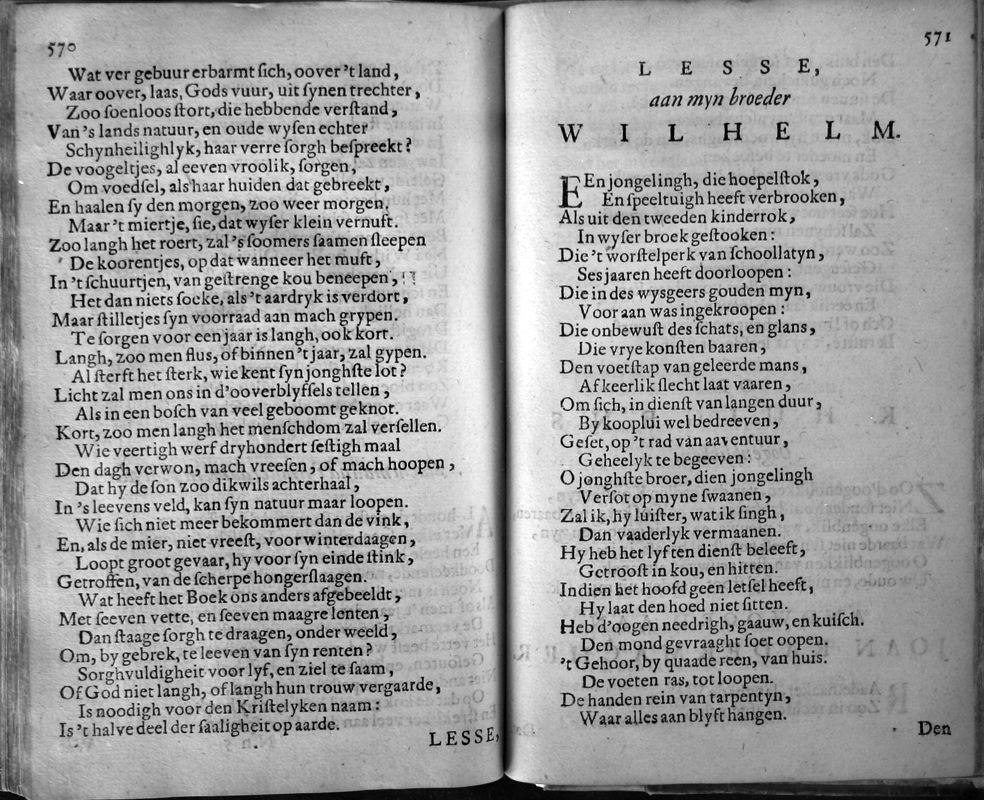 570
Wat ver gebuur erbarmt ſich, oover 't land,
Waar oover, laas, Gods vuur, uit ſynen trechter,
Zoo ſoenloos ſtort, die hebbende verſtand,
Van 's lands natuur, en oude wyſen echter
Schynheilighlyk, haar verre ſorgh beſpreekt?
De voogeltjes, al eeven vroolik, ſorgen,
Om voedſel, als haar huiden dat gebreekt,
En haalen ſy den morgen, zoo weer morgen.
Maar 't miertje, ſie, dat wyſer klein vernuft.
Zoo langh het roert, zal 's ſoomers ſaamen ſleepen
De koorentjes, op dat wanneer het muft,
In 't ſchuurtjen, van geſtrenge kou beneepen,
Het dan niets ſoeke, als 't aardryk is verdort,
Maar ſtilletjes ſyn voorraad aan mach grypen.
Te ſorgen voor een jaar is langh, ook kort.
Langh, zoo men flus, of binnen 't jaar, zal gypen.
Al ſterft het ſterk, wie kent ſyn jonghſte lot?
Licht zal men ons in d'ooverblyfſels tellen,
Als in een boſch van veel geboomt geknot.
Kort, zoo men langh het menſchdom zal verſellen.
Wie veertigh werf dryhondert ſeſtigh maal
Den dagh verwon, mach vreeſen, of mach hoopen,
Dat hy de ſon zoo dikwils achterhaal,
In 's leevens veld, kan ſyn natuur maar loopen.
Wie ſich niet meer bekommert dan de vink,
En, als de mier, niet vreeſt, voor winterdaagen,
Loopt groot gevaar, hy voor ſyn einde ſtink,
Getroffen, van de ſcherpe hongerſlaagen.
Wat heeft het Boek ons anders afgebeeldt,
Met ſeeven vette, en ſeeven maagre lenten,
Dan ſtaage ſorgh te draagen, onder weeld,
Om, by gebrek, te leeven van ſyn renten?
Sorghvuldigheit voor lyf, en ziel te ſaam,
Of God niet langh, of langh hun trouw vergaarde,
Is noodigh voor den Kriſtelyken naam:
Is 't halve deel der ſaaligheit op aarde.
LESSE,
571
LESSE,
aan myn broeder
WILHELM.
EEn jongelingh, die hoepelſtok,
En ſpeeltuigh heeft verbrooken,
Als uit den tweeden kinderrok,
In wyſer broek geſtooken:
Die 't worſtelperk van ſchoollatyn,
Ses jaaren heeft doorloopen:
Die in des wysgeers gouden myn,
Voor aan was ingekroopen:
Die onbewuſt des ſchats, en glans,
Die vrye konſten baaren,
Den voetſtap van geleerde mans,
Afkeerlik ſlecht laat vaaren,
Om ſich, in dienſt van langen duur,
By kooplui wel bedreeven,
Geſet, op 't rad van aaventuur,
Geheelyk te begeeven:
O jonghſte broer, dien jongelingh
Verſot op myne ſwaanen,
Zal ik, hy luiſter, wat ik ſingh,
Dan vaaderlyk vermaanen.
Hy heb het lyf ten dienſt beleeft,
Getrooſt in kou, en hitten.
Indien het hoofd geen letſel heeft,
Hy laat den hoed niet ſitten.
Heb d'oogen needrigh, gaauw, en kuiſch.
Den mond gevraaght ſoet oopen.
't Gehoor, by quaade reen, van huis.
De voeten ras, tot loopen.
De handen rein van tarpentyn,
Waar alles aan blyft hangen.
Den